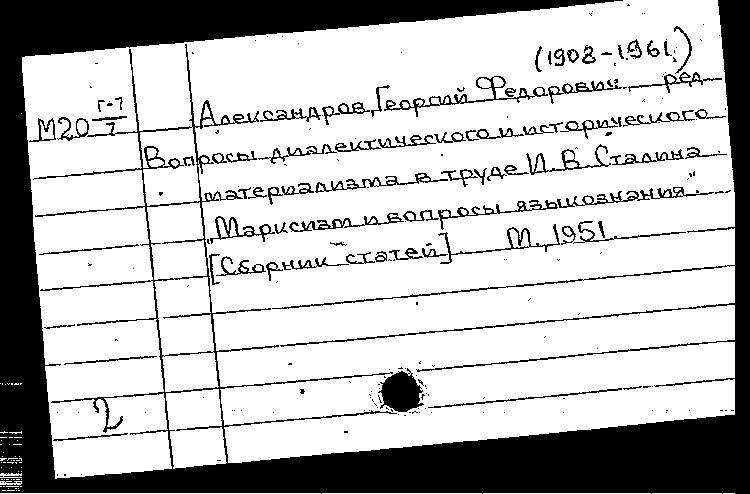 (1908-1961)
М20 Г-7/7
Александров, Георгий Федорович, ред.
Вопросы диалектического и исторического
материализма в труде И. В. Сталина
„Марксизм и вопросы языкознания".
[Сборник статей]. М., 1951.
2